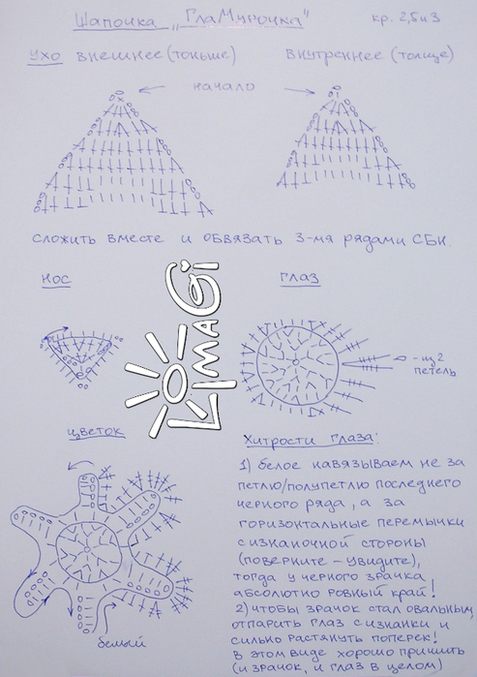 Шапочка „ГлаМурочка" кр. 2,5 и 3
ухо внешнее (тоньше) внутреннее (толще)
начало
сложить вместе и обвязать 3-мя рядами СБН.
нос
глаз
- из 2
петель
OLIMAGi
цветок
белый
Хитрости глаза:
1) белое навязываем не за
петлю/полупетлю последнего
черного ряда, а за
горизонтальные перемычки
с изнаночной стороны
(поверните - увидите),
тогда у черного зрачка
абсолютно ровный край!
2) чтобы зрачок стал овальным,
отпарить глаз с изнанки и
сильно растянуть поперек!
В этом виде хорошо пришить
(и зрачок, и глаз в целом)